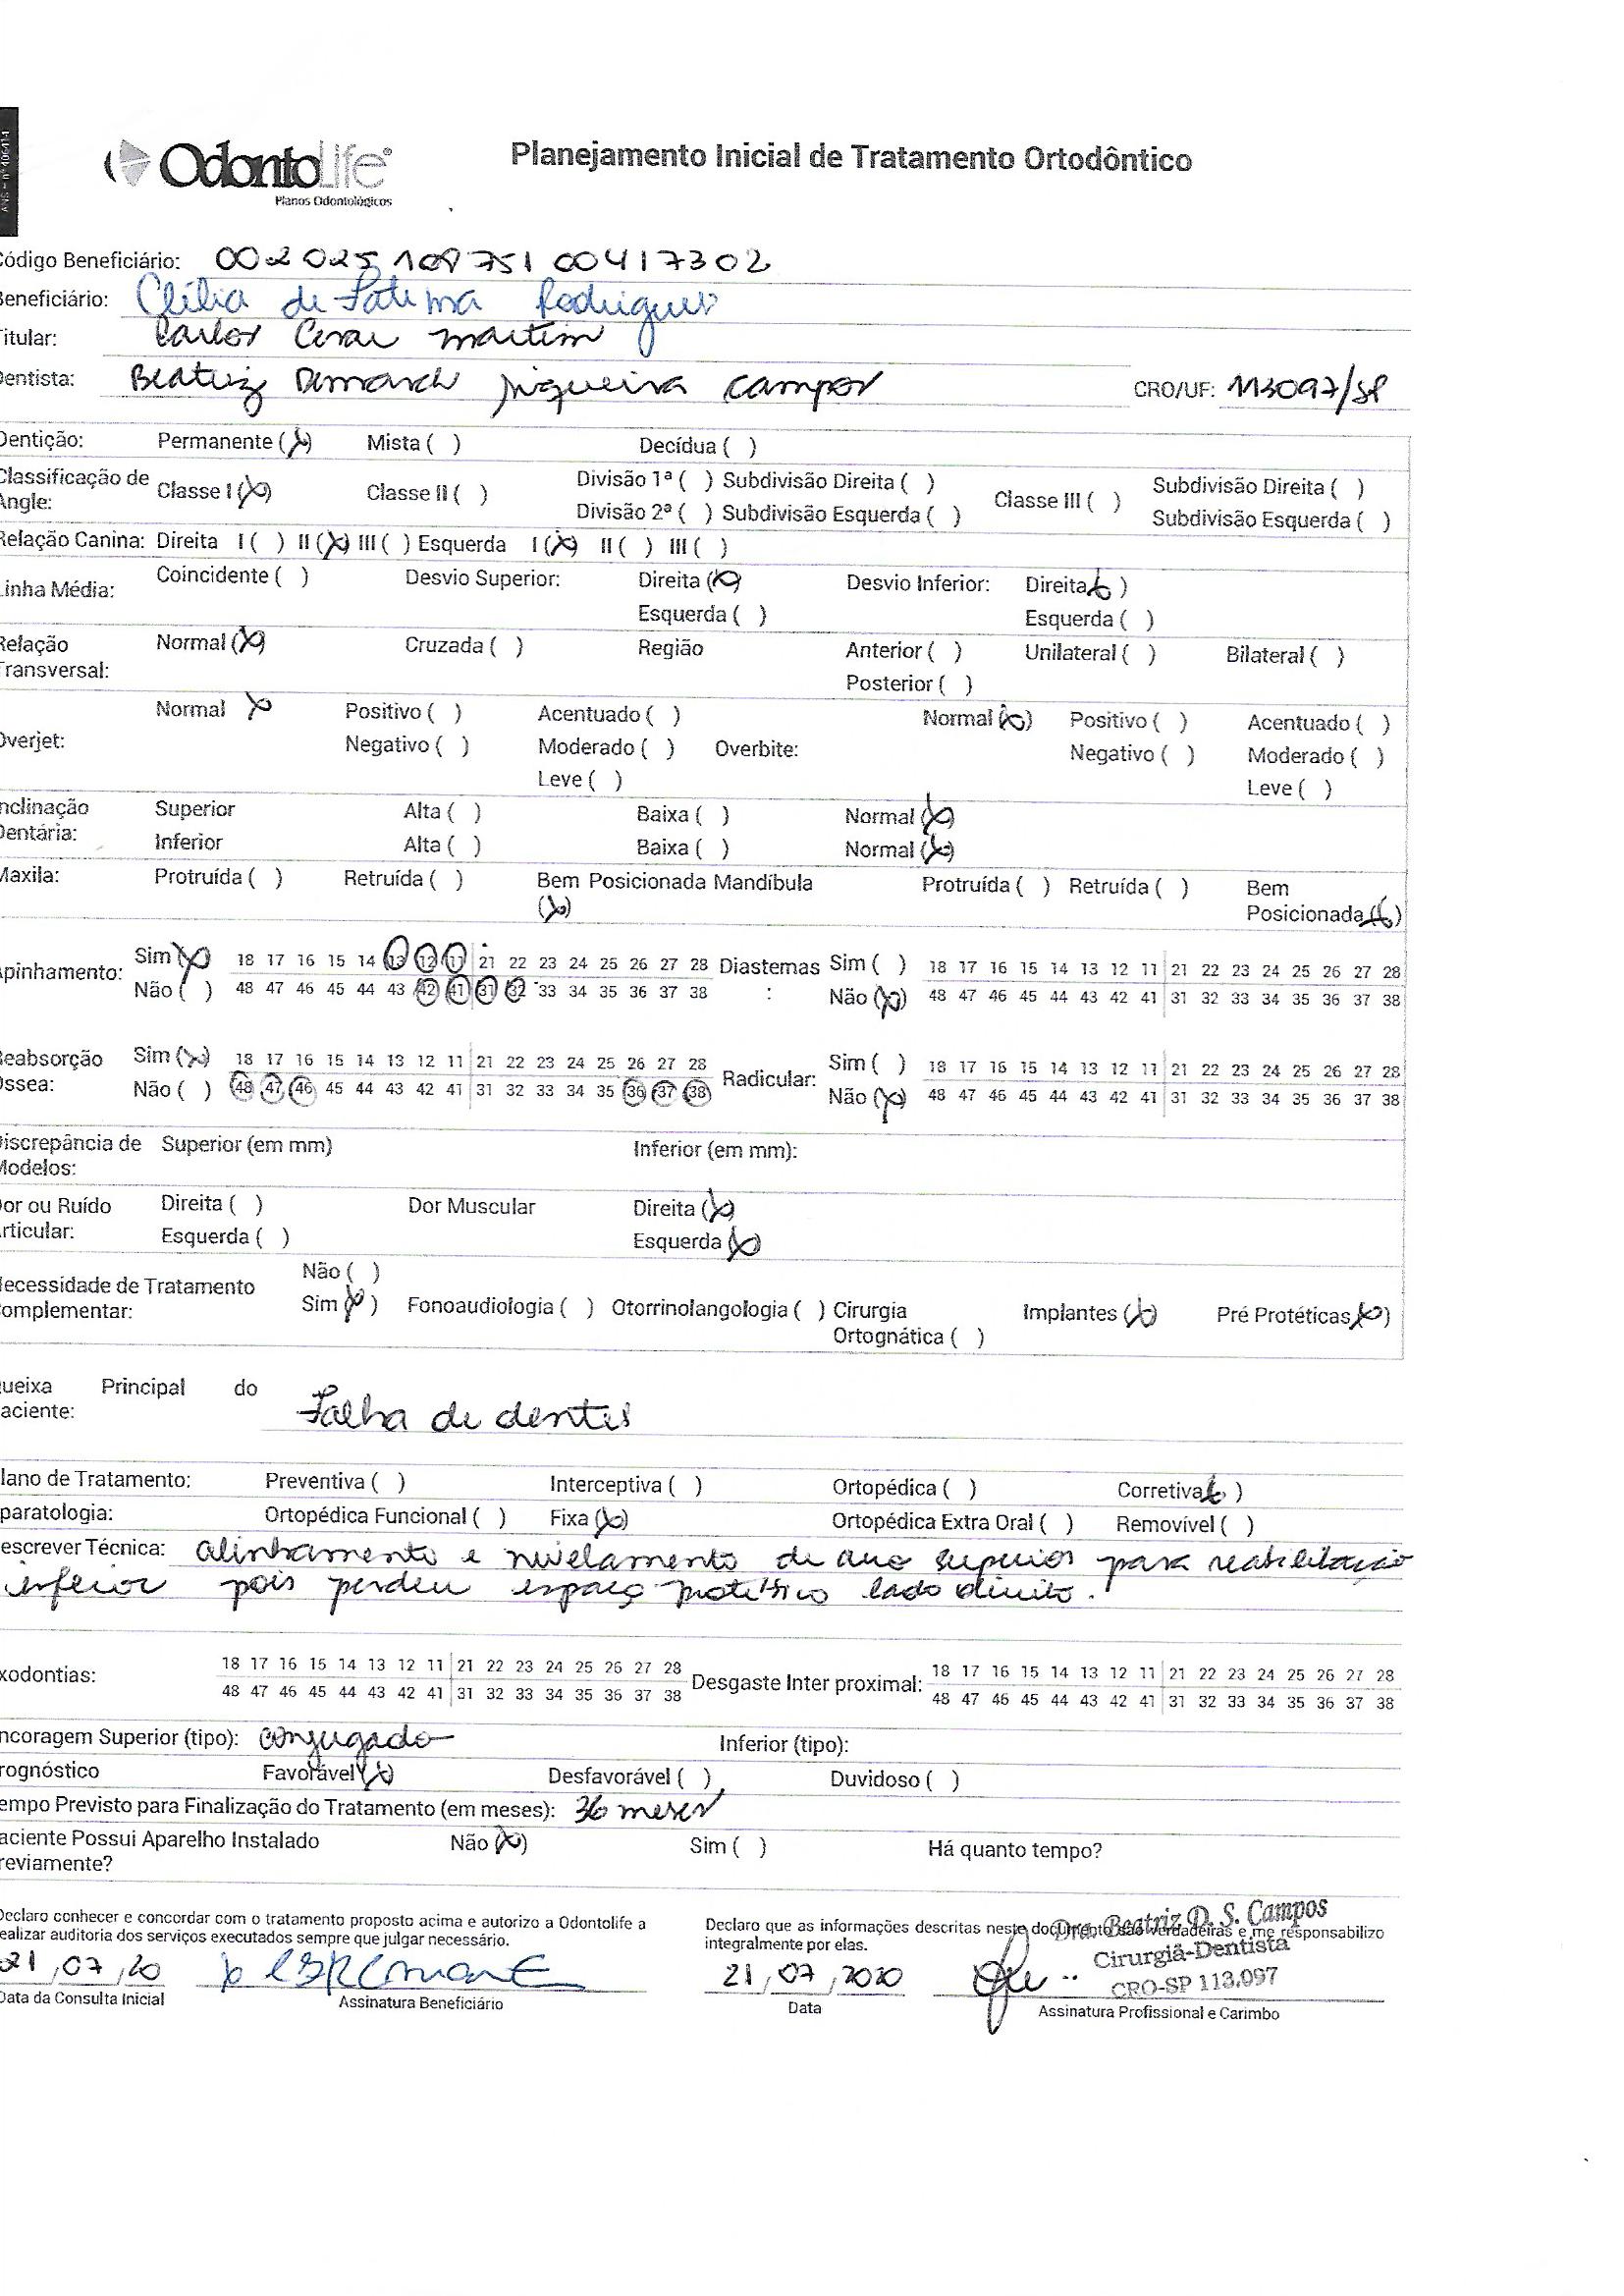 ANS - nº 406414
OdontoLife®
Planos Odontológicos
Planejamento Inicial de Tratamento Ortodôntico
ódigo Beneficiário: 002025108751 00417302
Beneficiário: Clélia de Fatima Rodrigues
itular: Carlos Cesar Martim
entista: Beatriz Siqueira Campos CRO/UF: 113097/SP
Dentição: Permanente (X) Mista ( ) Decídua ( )
Classificação de Angle: Classe I (X) Classe II ( ) Divisão 1ª ( ) Subdivisão Direita ( ) Classe III ( ) Subdivisão Direita ( )
Divisão 2ª ( ) Subdivisão Esquerda ( ) Subdivisão Esquerda ( )
Relação Canina: Direita I ( ) II (X) III ( ) Esquerda I (X) II ( ) III ( )
Linha Média: Coincidente ( ) Desvio Superior: Direita (X) Desvio Inferior: Direita (X)
Esquerda ( ) Esquerda ( )
Relação Transversal: Normal (X) Cruzada ( ) Região Anterior ( ) Unilateral ( ) Bilateral ( )
Posterior ( )
Overjet: Normal X Positivo ( ) Acentuado ( ) Overbite: Normal (X) Positivo ( ) Acentuado ( )
Negativo ( ) Moderado ( ) Negativo ( ) Moderado ( )
Leve ( ) Leve ( )
nclinação Dentária: Superior Alta ( ) Baixa ( ) Normal (X)
Inferior Alta ( ) Baixa ( ) Normal (X)
Maxila: Protruída ( ) Retruída ( ) Bem Posicionada (X) Mandíbula Protruída ( ) Retruída ( ) Bem Posicionada (X)
Apinhamento: Sim (X) 18 17 16 15 14 13 12 11 21 22 23 24 25 26 27 28 Diastemas: Sim ( ) 18 17 16 15 14 13 12 11 21 22 23 24 25 26 27 28
Não ( ) 48 47 46 45 44 43 42 41 31 32 33 34 35 36 37 38 Não (X) 48 47 46 45 44 43 42 41 31 32 33 34 35 36 37 38
Reabsorção Óssea: Sim (X) 18 17 16 15 14 13 12 11 21 22 23 24 25 26 27 28 Radicular: Sim ( ) 18 17 16 15 14 13 12 11 21 22 23 24 25 26 27 28
Não ( ) 48 47 46 45 44 43 42 41 31 32 33 34 35 36 37 38 Não (X) 48 47 46 45 44 43 42 41 31 32 33 34 35 36 37 38
iscrepância de Modelos: Superior (em mm) Inferior (em mm):
or ou Ruído rticular: Direita ( ) Dor Muscular Direita (X)
Esquerda ( ) Esquerda (X)
ecessidade de Tratamento omplementar: Não ( )
Sim (X) Fonoaudiologia ( ) Otorrinolangologia ( ) Cirurgia Ortognática ( ) Implantes (X) Pré Protéticas (X)
ueixa Principal do aciente: Falha de dentes
lano de Tratamento: Preventiva ( ) Interceptiva ( ) Ortopédica ( ) Corretiva (X)
paratologia: Ortopédica Funcional ( ) Fixa (X) Ortopédica Extra Oral ( ) Removível ( )
escrever Técnica: alinhamento e nivelamento de arco superior para reabilitação
inferior pois perdeu espaço protético lado direito.
xodontias: 18 17 16 15 14 13 12 11 21 22 23 24 25 26 27 28 Desgaste Inter proximal: 18 17 16 15 14 13 12 11 21 22 23 24 25 26 27 28
48 47 46 45 44 43 42 41 31 32 33 34 35 36 37 38 48 47 46 45 44 43 42 41 31 32 33 34 35 36 37 38
ncoragem Superior (tipo): conjugado Inferior (tipo):
rognóstico Favorável (X) Desfavorável ( ) Duvidoso ( )
empo Previsto para Finalização do Tratamento (em meses): 36 meses
aciente Possui Aparelho Instalado reviamente? Não (X) Sim ( ) Há quanto tempo?
Declaro conhecer e concordar com o tratamento proposto acima e autorizo a Odontolife a
ealizar auditoria dos serviços executados sempre que julgar necessário.
21/07/20
Data da Consulta Inicial Assinatura Beneficiário
Declaro que as informações descritas neste documento são verdadeiras e me responsabilizo
integralmente por elas.
Dra. Beatriz D. S. Campos
Cirurgiã-Dentista
CRO-SP 113.097
21/07/2020
Data Assinatura Profissional e Carimbo